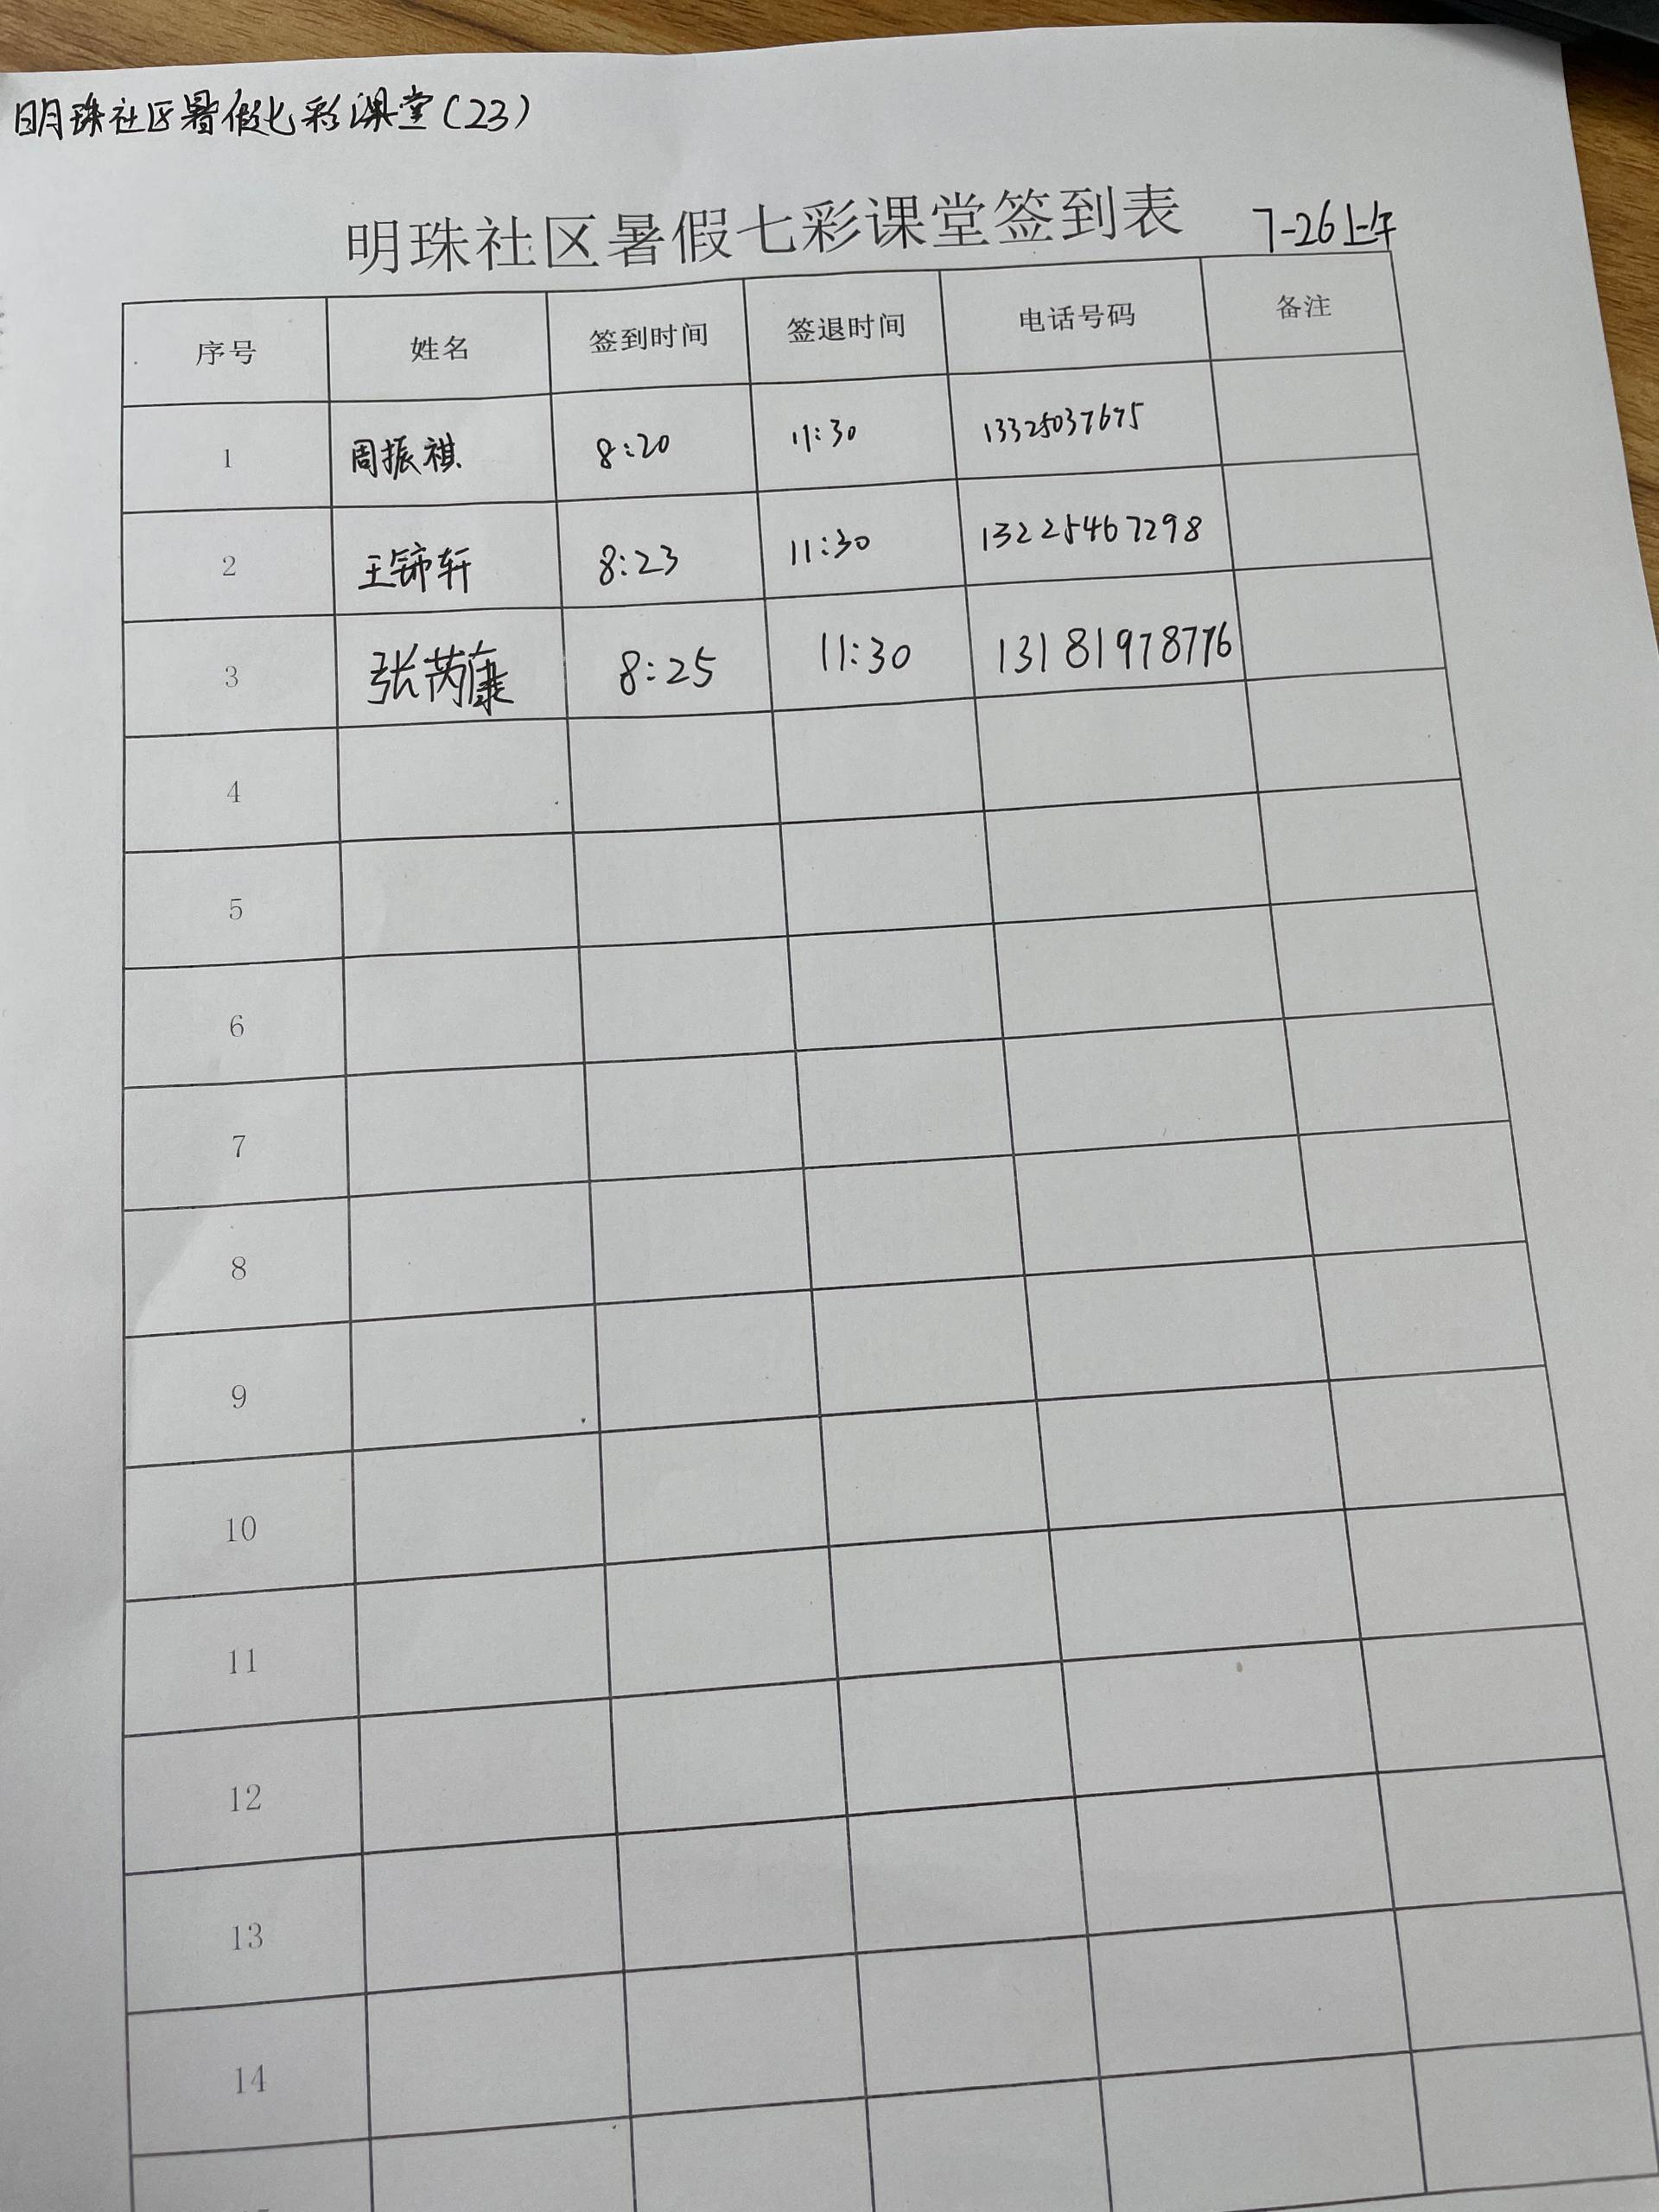 明珠社区暑假七彩课堂(23)
明珠社区暑假七彩课堂签到表 7-26上午
序号 姓名 签到时间 签退时间 电话号码 备注
1 周振祺 8:20 11:30 13325037675
2 王锦轩 8:23 11:30 13225467298
3 张芮康 8:25 11:30 13181978776
4
5
6
7
8
9
10
11
12
13
14